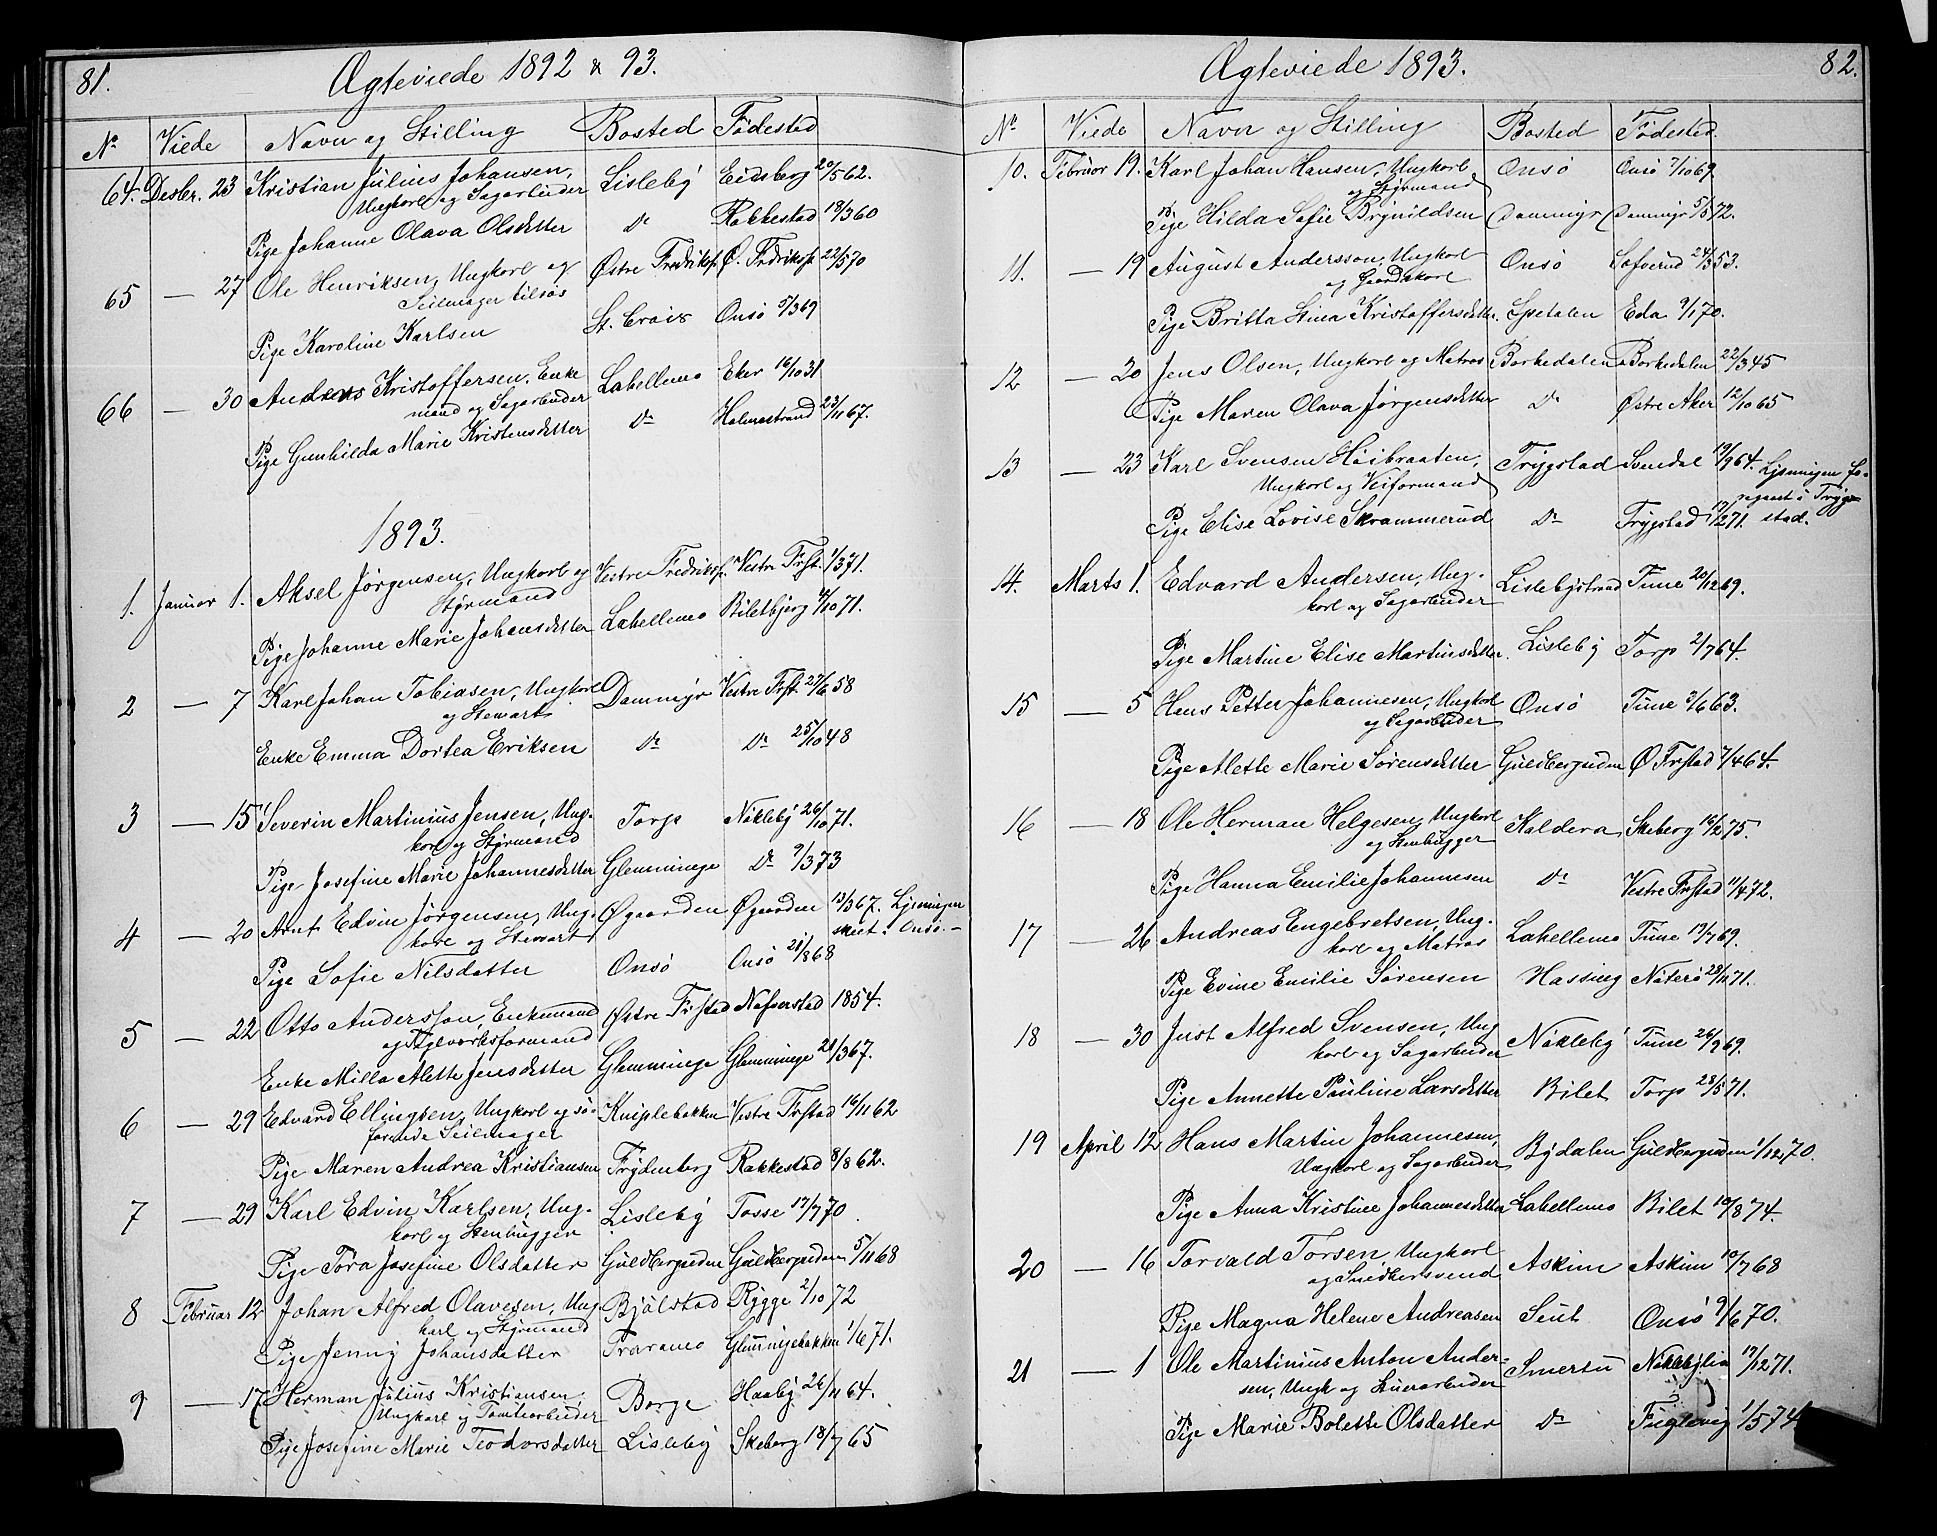 81. Ægteviede 1892 & 93.
No Viede Navn og Stilling Bosted Fødested
64. Desbr. 23 Kristian Julius Johansen, Lisleby Eidsberg 20/5 62.
Ungkarl og Sagarbeider
Pige Johanne Olava Olsdatter Do Rakkestad 18/3 60
65 — 27 Ole Henriksen, Ungkarl og Østre Fredrikst. Ø. Fredrikst. 22/5 70
Seilmager tilsøs
Pige Karoline Karlsen St. Croix Onsø 5/3 69
66 — 30 Andreas Kristoffersen, Enke Labellemo Eker 16/10 31
mand og Sagarbeider
Pige Gunhilda Marie Kristensdatter Do Holmestrand 23/11 67.
1893.
1. Januar 1. Aksel Jørgensen, Ungkarl og Vestre Fredrikst. Vestre Frst. 1/3 71.
Styrmand
Pige Johanne Marie Johansdatter Labellemo Biletbjerg /10 71.
2 — 7 Karl Johan Tobiasen, Ungkarl Dammyr Vestre Frst. 27/6 58
og Stewart
Enke Emma Dortea Eriksen Do Do 25/10 48
3 — 15 Severin Martinius Jensen, Ung- Torp Nøkleby 26/10 71.
karl og Styrmand
Pige Josefine Marie Johannesdatter Glemminge Do 9/3 73
4 — 20 Arnt Edvin Jørgensen, Ung- Øgaarden Øgaarden 13/3 67. Lysningen
karl og Stewart skeet i Onsø.—
Pige Sofie Nilsdatter Onsø Onsø 21/8 68
5 — 22 Otto Andersson, Enkemand Østre Frstad Nafverstad 1854.
og Teglverksformand
Enke Milla Alette Jensdatter Glemminge Glemminge 21/3 67.
6 — 29 Edvard Ellingsen, Ungkarl og sø- Kniplebakken Vestre Frstad 16/11 62
farende Seilmager
Pige Maren Andrea Kristiansen Frydenberg Rakkestad 8/8 62.
7 — 29 Karl Edvin Karlsen, Ung- Lisleby Tosse 17/7 70
karl og Stenhugger
Pige Tora Josefine Olsdatter Guldbergseden Guldbergseden 5/11 68
8 Februar 12 Johan Alfred Olavesen, Ung Bjølstad Rygge 2/10 72
karl og Styrmand
Pige Jenny Johansdatter Traramo Glemmigebakken 1/6 71.
9 — 17 Herman Julius Kristiansen, Borge Haaby 26/11 64.
Ungkarl og Tomtearbeider
Pige Josefine Marie Teodorsdatter Lisleby Skeberg 18/7 65
Ægteviede 1893. 82.
No Viede Navn og Stilling Bosted Fødested
10. Februar 19. Karl Johan Hansen, Ungkarl Onsø Onsø 7/10 69.
og Styrmand
Pige Hilda Sofie Brynildsen Dammyr Dammyr 5/5 72.
11. — 19 August Andersson, Ungkarl Onsø 24/3 53.
og Gaardskarl
Pige Britta Stina Kristoffersdatter. Spetalen Eda 9/1 70.
12 — 20 Jens Olsen, Ungkarl og Matros Borkedalen Borkedalen 22/3 45
Pige Maren Olava Jørgensdatter Do Østre Aker 12/10 65
13 — 23 Karl Svensen Høibraaten, Trygstad Svendal 19/9 64. Lysningen fo-
Ungkarl og Veiformand regaaet i Tryg-
Pige Elise Lovise Skrammerud Do Trygstad 17/2 71. stad.
14. Marts 1. Edvard Andersen, Ung- Lislebystrand Tune 20/12 69.
karl og Sagarbeider
Pige Martine Elise Martinsdatter. Lisleby Torp 2/7 64.
15 — 5 Hans Petter Johannesen, Ungkarl Onsø Tune 3/6 63.
og Sagarbeider
Pige Alette Marie Sørensdatter Guldbergseden Ø Frstad 7/4 64.
16 — 18 Ole Herman Helgesen, Ungkarl Kaldera Skeberg 16/2 75.
og Stenhugger
Pige Hanna Emilie Johannesen Do Vestre Frstad 11/4 72.
17 — 26 Andreas Engebretsen, Ung- Labellemo Tune 19/7 69.
karl og Matros
Pige Evine Emilie Sørensen Hassing Nøterø 28/11 71.
18 — 30 Just Alfred Svensen, Ung Nøkleby Tune 26/9 69.
karl og Sagarbeider
Pige Annette Pauline Larsdatter Bilet Torp 28/5 71.
19 April 12 Hans Martin Johannesen, Bydalen Guldbergseden 1/12 70.
Ungkarl og Sagarbeider
Pige Anna Kristine Johannesdatter Labellemo Bilet 10/8 74.
20 — 16 Torvald Torsen Ungkarl Askim Askim 10/7 68
og Snedkersvend
Pige Magna Helene Andreasen Seut Onsø 9/6 70.
21 — 1 Ole Martinius Anton Ander- Smertu Nøklebylia 17/12 71.
sen, Ungk og Linearbeider
Pige Marie Bolette Olsdatter Do Fuglevig 1/5 74